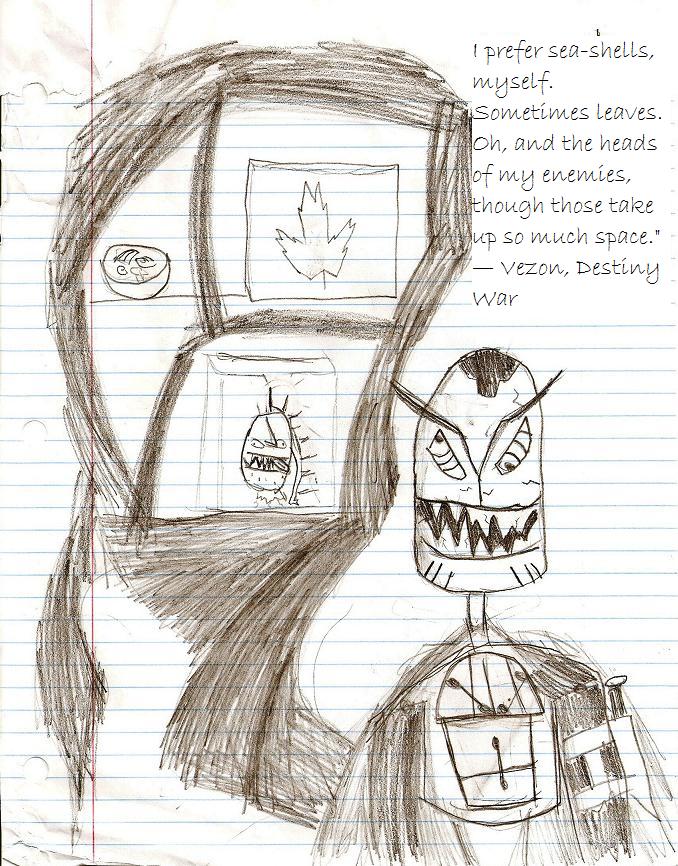 I prefer sea-shells,
myself.
Sometimes leaves.
Oh, and the heads
of my enemies,
though those take
up so much space."
— Vezon, Destiny
War